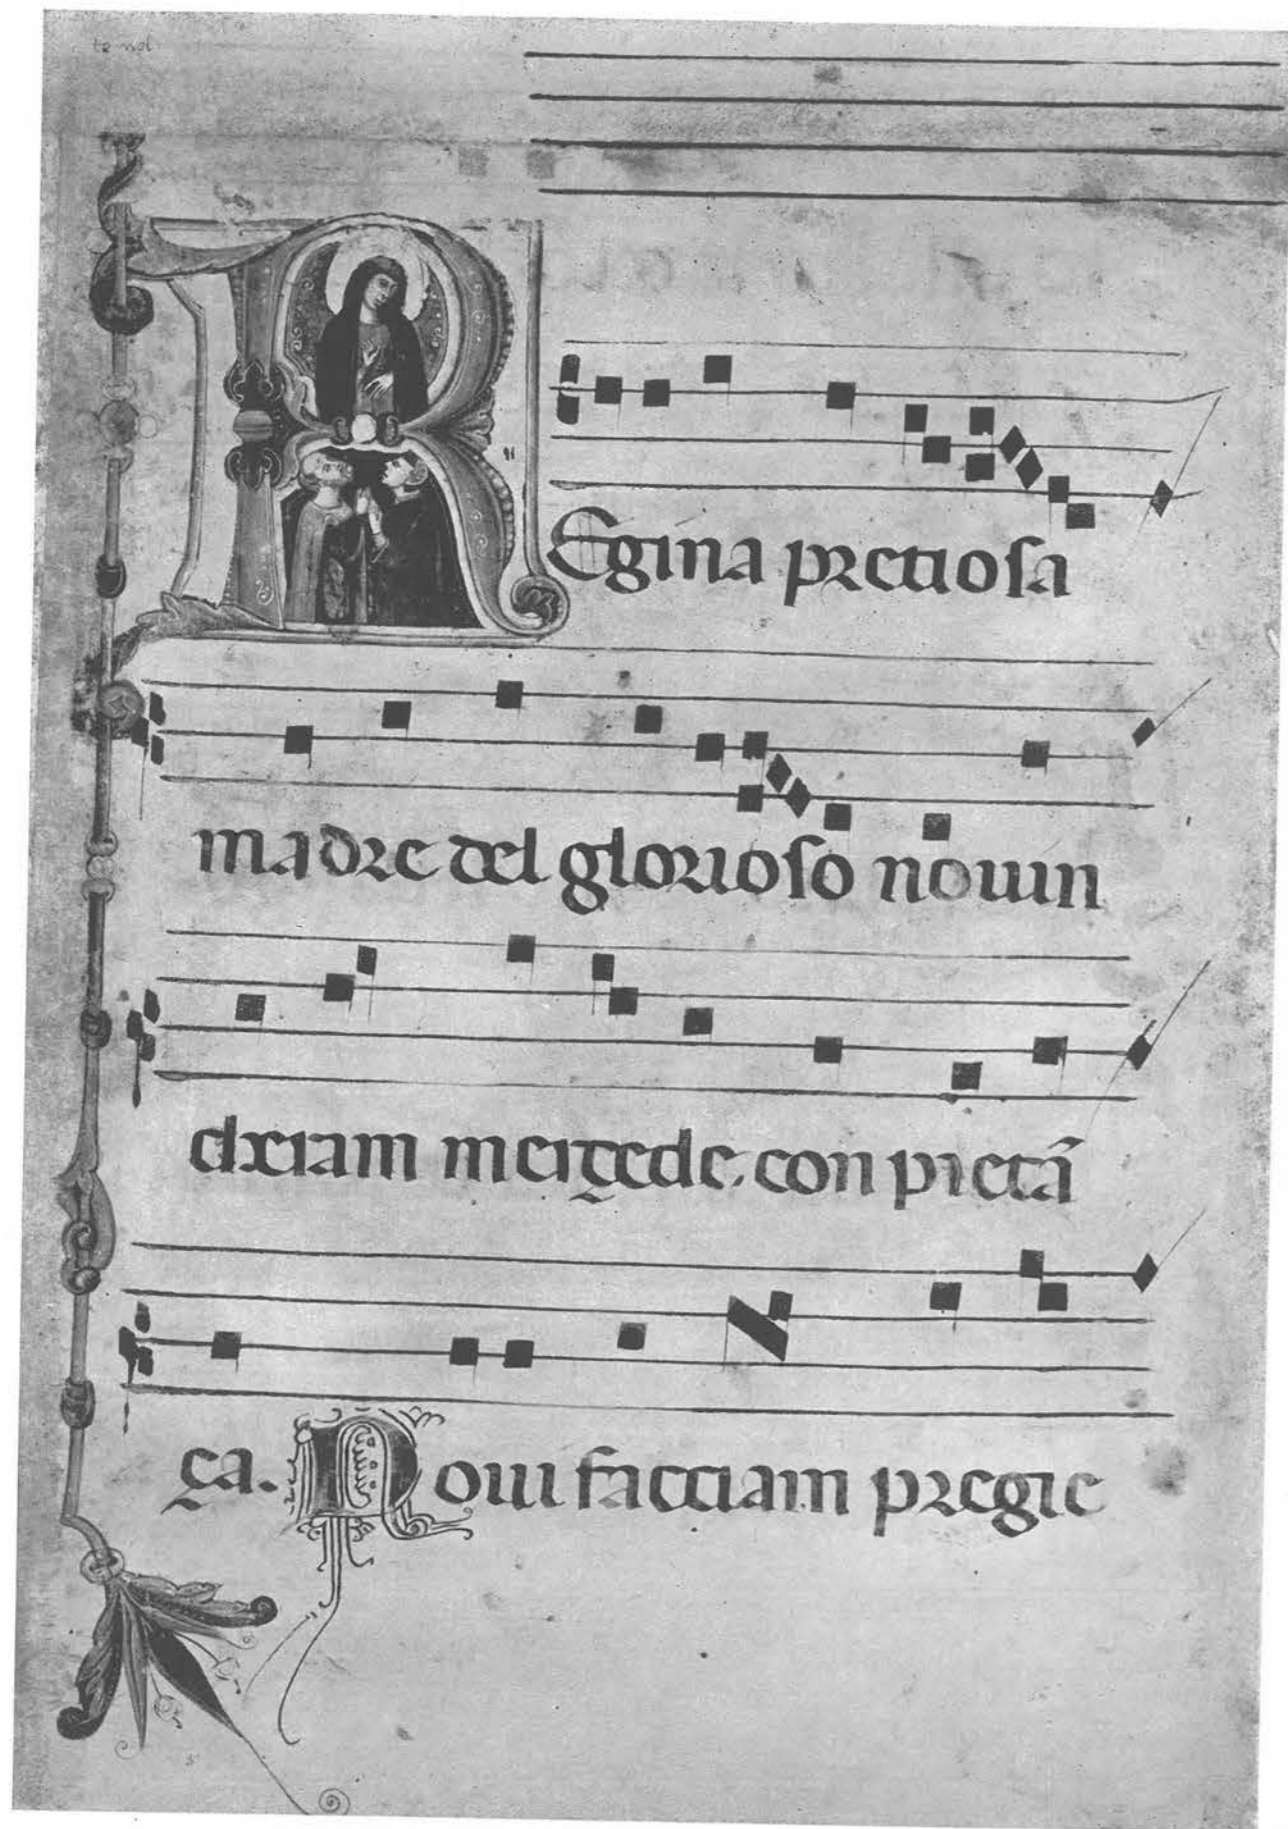 te nol
REgina pretiosa
madre del glorioso nouin
cheram merçede. con pietã
ça. Noui facciam pregie